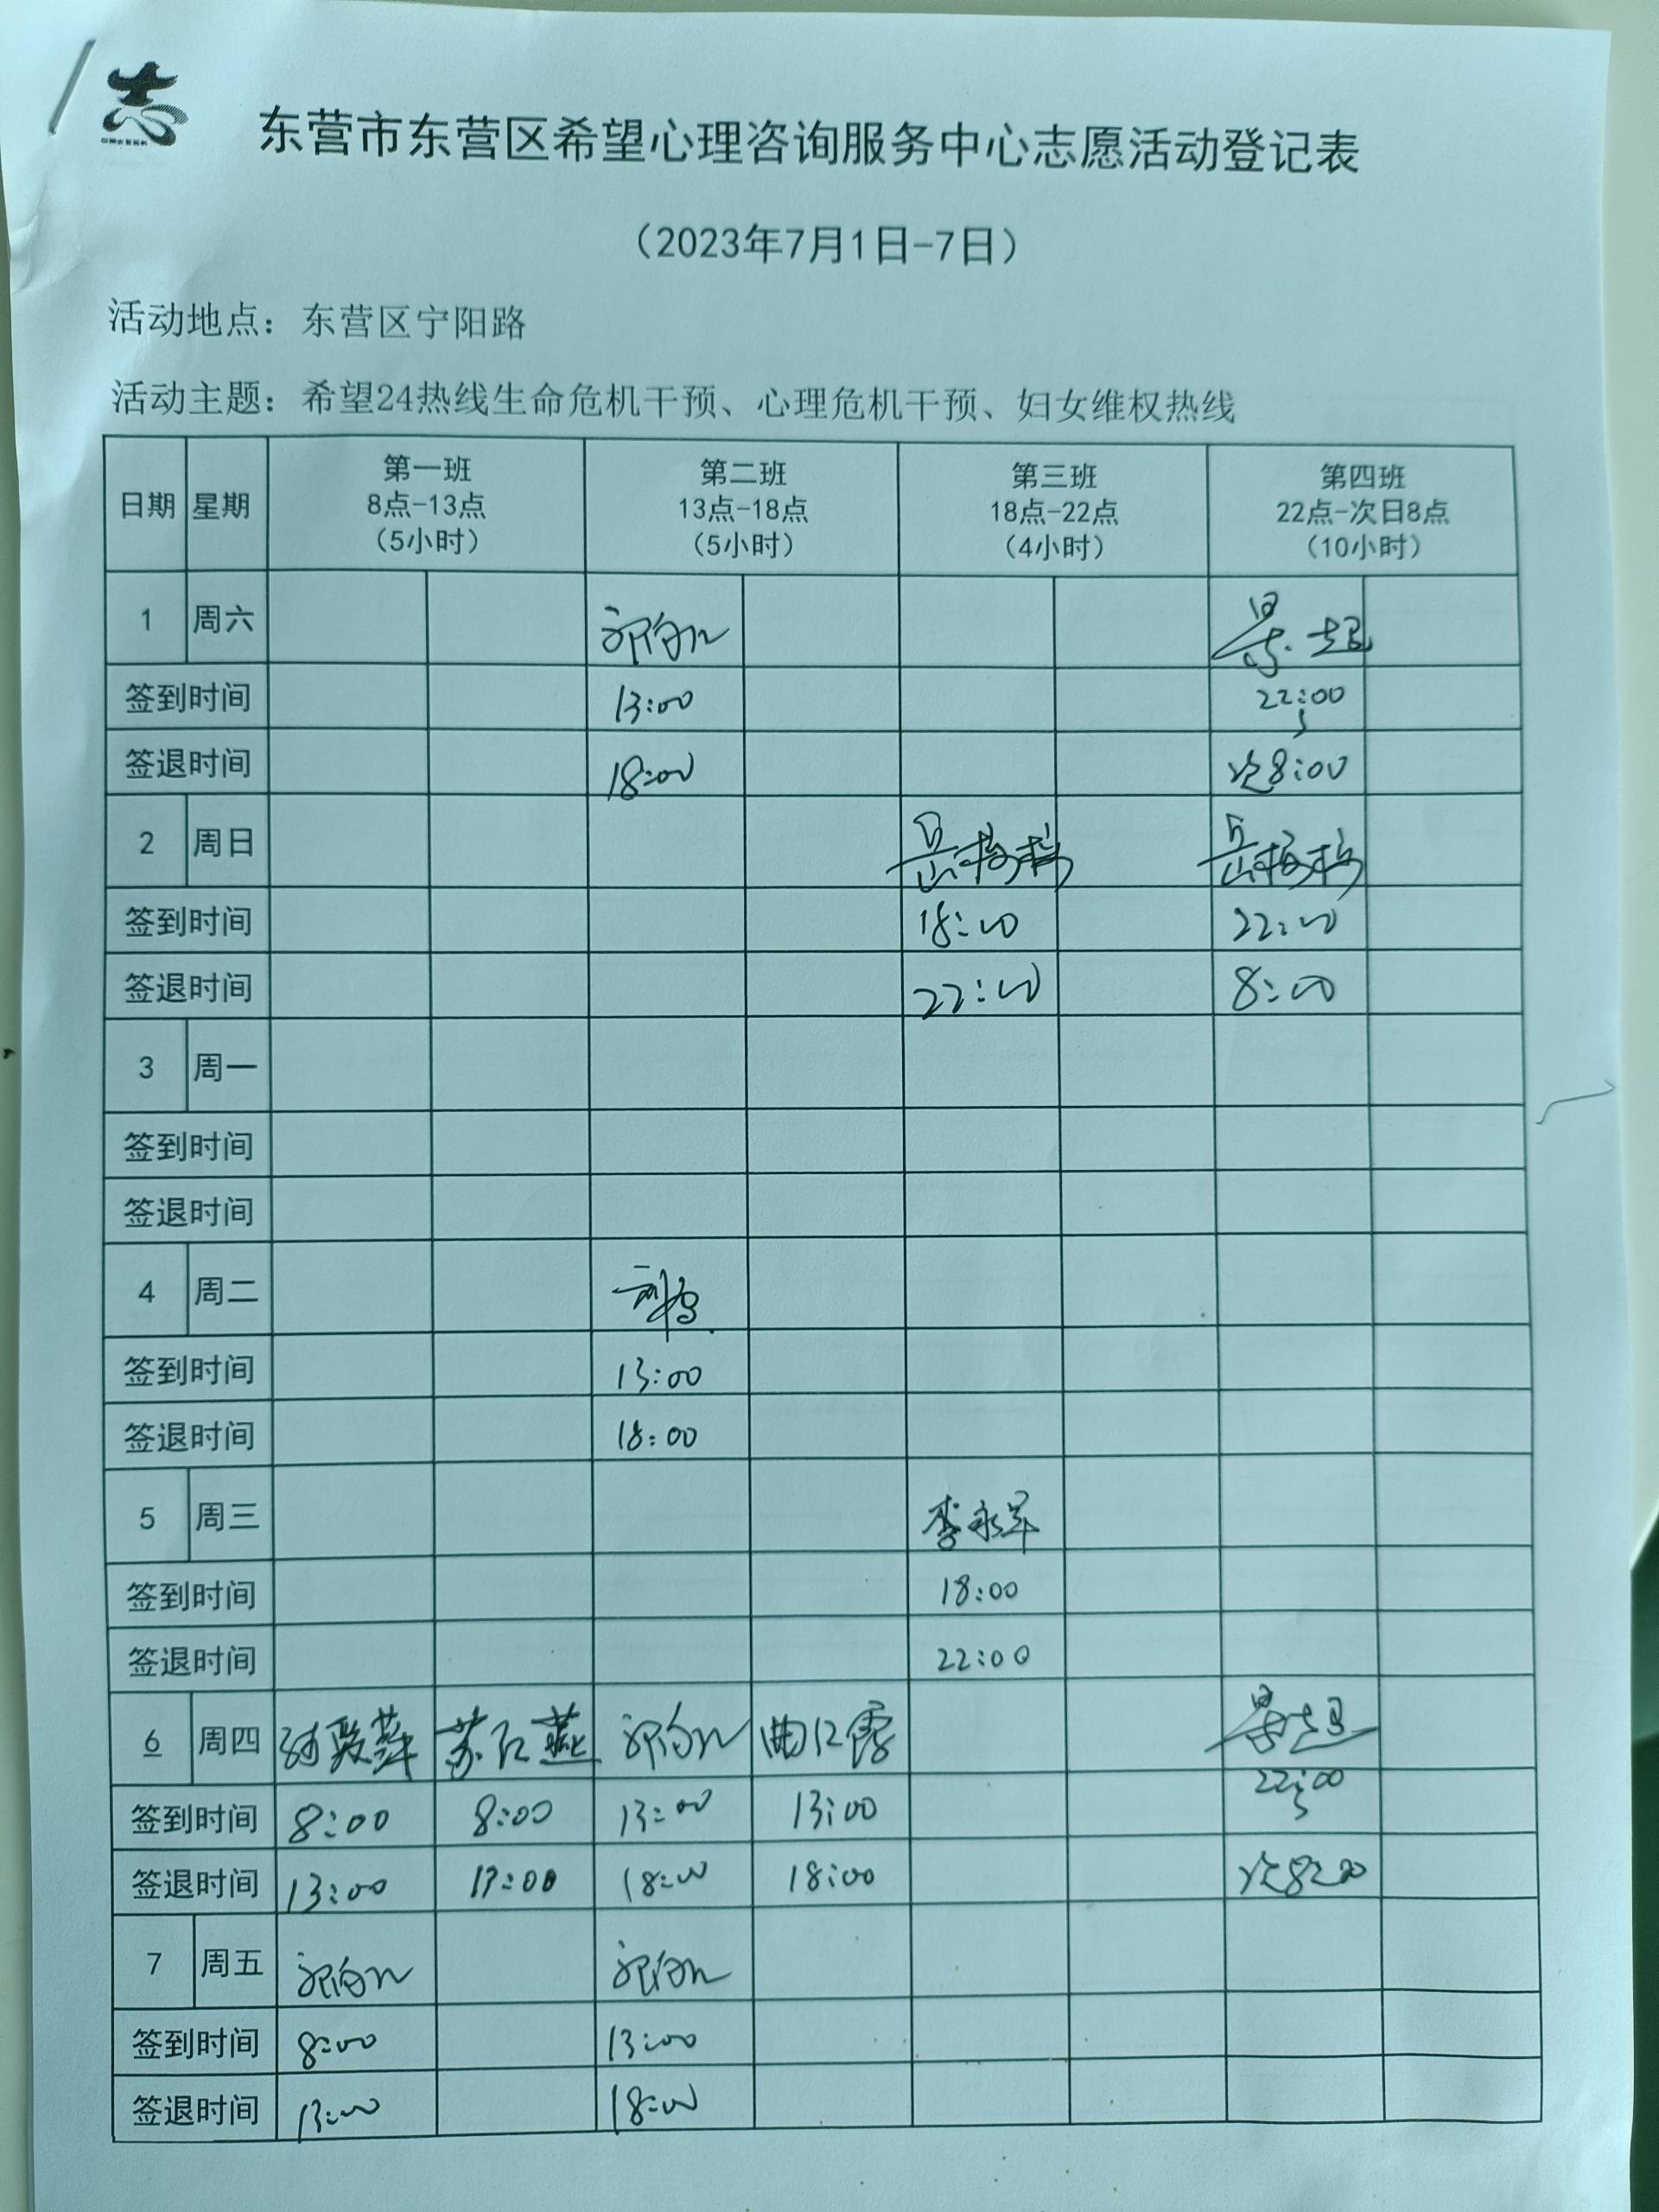 志
东营市东营区希望心理咨询服务中心志愿活动登记表
（2023年7月1日-7日）
活动地点：东营区宁阳路
活动主题：希望24热线生命危机干预、心理危机干预、妇女维权热线
日期 星期 第一班 8点-13点 （5小时） 第二班 13点-18点 （5小时） 第三班 18点-22点 （4小时） 第四班 22点-次日8点 （10小时）
1 周六 景超
签到时间 13:00 22:00
签退时间 18:00 次8:00
2 周日
签到时间 18:00 22:00
签退时间 22:00 8:00
3 周一
签到时间
签退时间
4 周二
签到时间 13:00
签退时间 18:00
5 周三 李永军
签到时间 18:00
签退时间 22:00
6 周四 苏红燕 曲江霞 景超
签到时间 8:00 8:00 13:00 13:00 22:00
签退时间 13:00 13:00 18:00 18:00 次8:00
7 周五
签到时间 8:00 13:00
签退时间 13:00 18:00